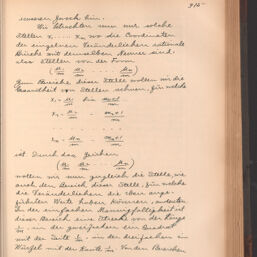 915
unseren Zweck hin.
Wir betrachten nun nur solche
Stellen x₁ .... xₙ wo die Coordinaten
der einzelnen Veränderlichen rationale
Brüche mit demselben Nenner sind,
also Stellen von der Form
Zum Bereiche dieser Stelle wollen wir die
Gesamtheit von Stellen rechnen, für welche
ist. Durch das Zeichen
wollen wir nun zugleich die Stelle, wie
auch den Bereich dieser Stelle, für welche
die Veränderlichen die oben ange-
führten Werte haben können, andeuten.
In der einfachen Mannigfaltigkeit ist
dieser Bereich eine Strecke von der Länge
1/m, in der zweifachen ein Quadrat
mit der Seite 1/m, in der dreifachen ein
Würfel mit der Kante 1/m. Von den Bereichen